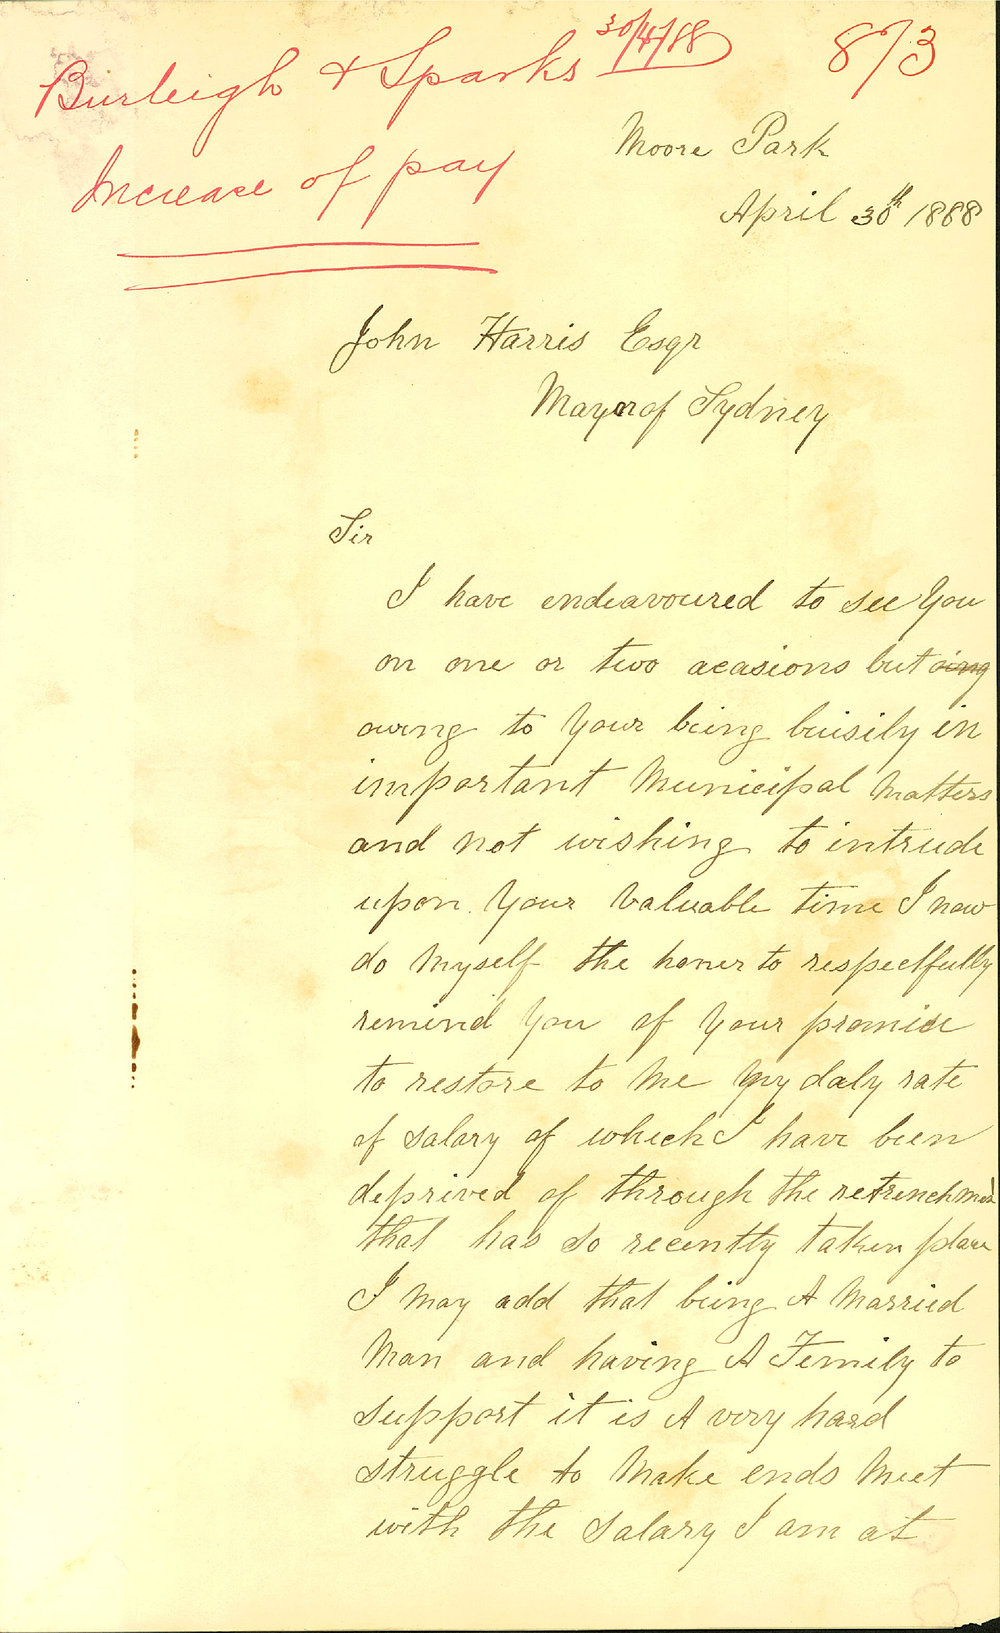 Burleigh & Sparks 30/4/88 873
Increase of pay
Moore Park
April 30th 1888
John Harris Esqr
Mayor of Sydney
Sir
I have endeavoured to see You
on one or two acasions but oing
owing to Your being buisily in
important Municipal Matters
and not wishing to intrude
upon Your Valuable time I now
do Myself the honer to respectfully
remind You of Your promise
to restore to Me My daly rate
of salary of which I have been
deprived of through the retrenchment
that has so recently taken place
I May add that being A Married
Man and having A Femily to
support it is A very hard
struggle to Make ends Meet
with the salary I am at